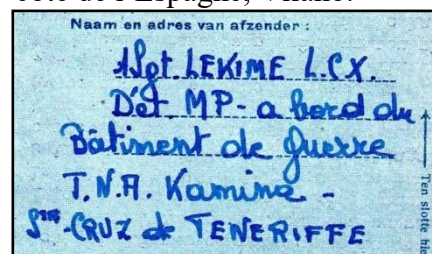 côte de l'Espagne,
Naam en adres van afzender :
1Sgt. LEKIME L.CX.
Dét. MP - a bord du
Bâtiment de Guerre
T.N.A. Kamina -
Ste-CRUZ de TENERIFFE
Ten slotte hie